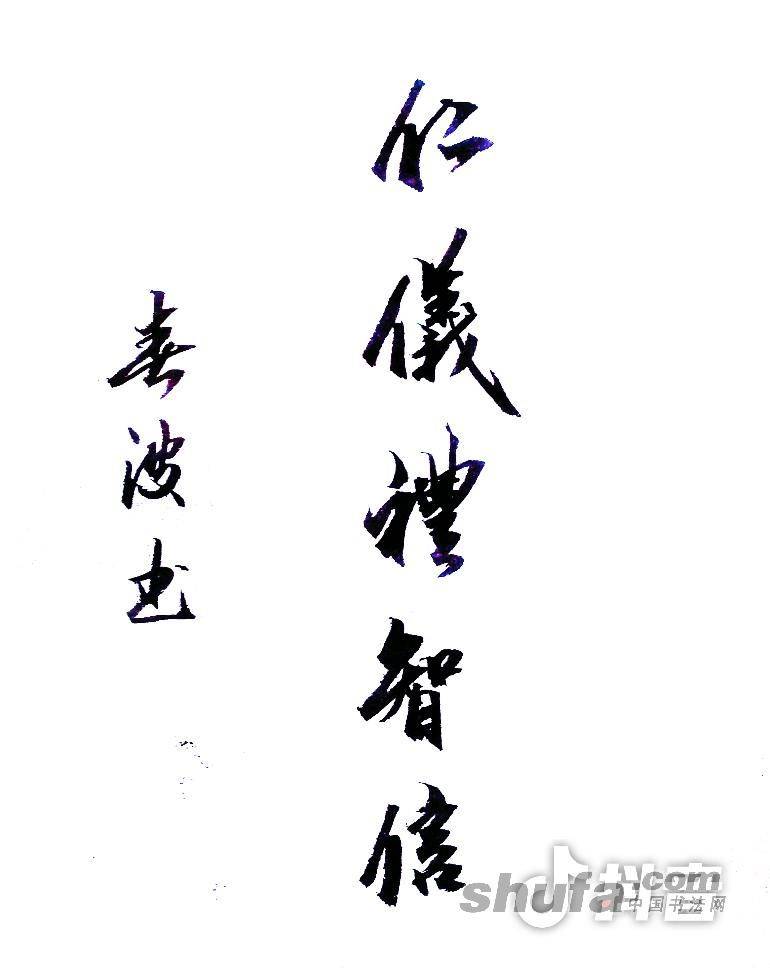 仁儀禮智信
春波书
抖音
shufa.com
中国书法网